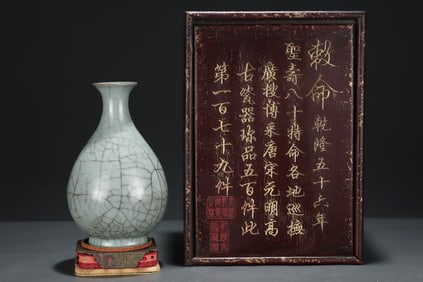 敕命乾隆五十六年
聖壽八十特命各地巡撫
廣搜博采唐宋元明高
古瓷器珍品五百件此
第一百七十九件